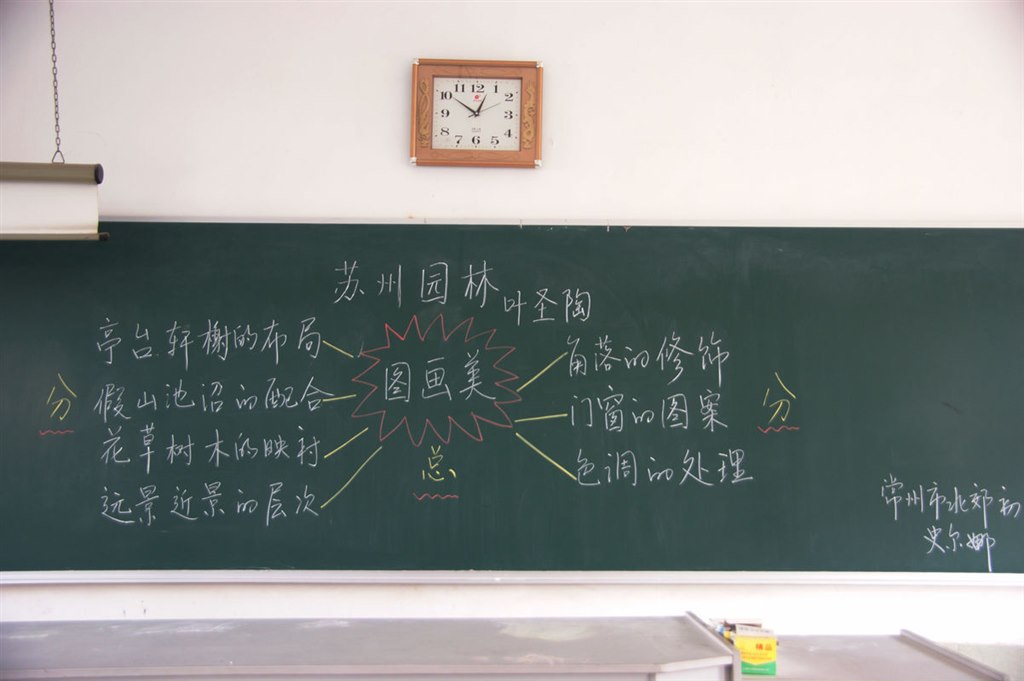 11 12 1
10 2
9 3
8 4
7 6 5
苏州园林
叶圣陶
亭台轩榭的布局
假山池沼的配合
花草树木的映衬
远景近景的层次
分
图画美
总
角落的修饰
门窗的图案
色调的处理
分
常州市北郊初
史尔娜